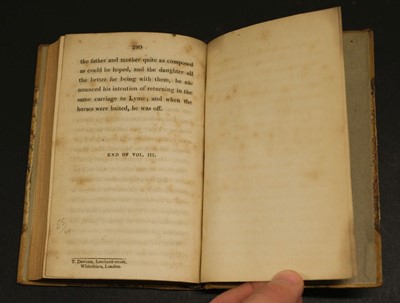 280
the father and mother quite as composed
as could be hoped, and the daughter all
the better for being with them, he an-
nounced his intention of returning in the
same carriage to Lyme; and when the
horses were baited, he was off.
END OF VOL. III.
T. Davison, Lombard-street,
Whitefriars, London.